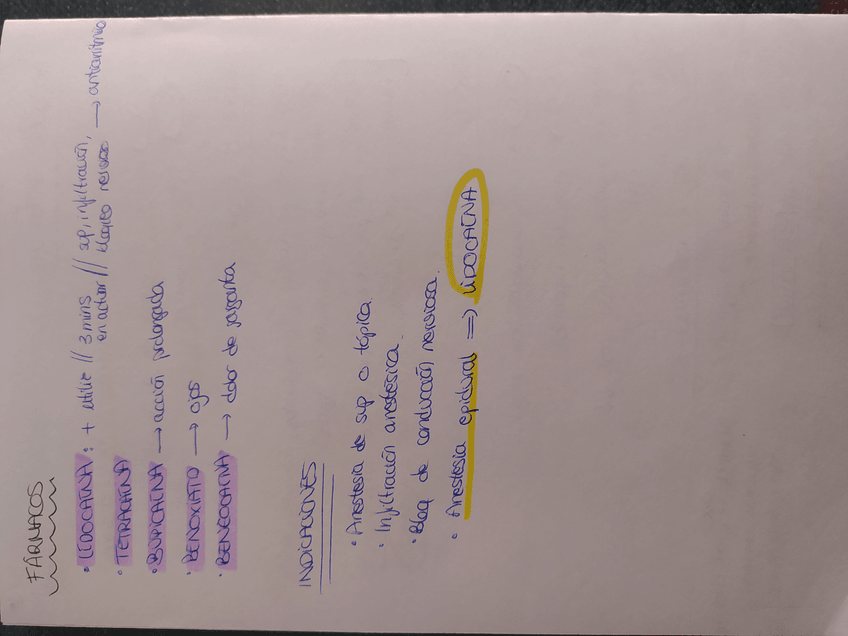 FÁRMACOS
• LIDOCAÍNA: + utiliz // 3 mins en actuar // sup, infiltración, bloqueo nervioso → antiarrítmico
• TETRACAÍNA
• BUPICAÍNA → acción prolongada
• BENOXIATO → ojos
• BENEOCAÍNA → dolor de garganta
INDICACIONES
• Anestesia de sup o tópica.
• Infiltración anestésica.
• Bloq de conducción nerviosa.
• Anestesia epidural => LIDOCAÍNA